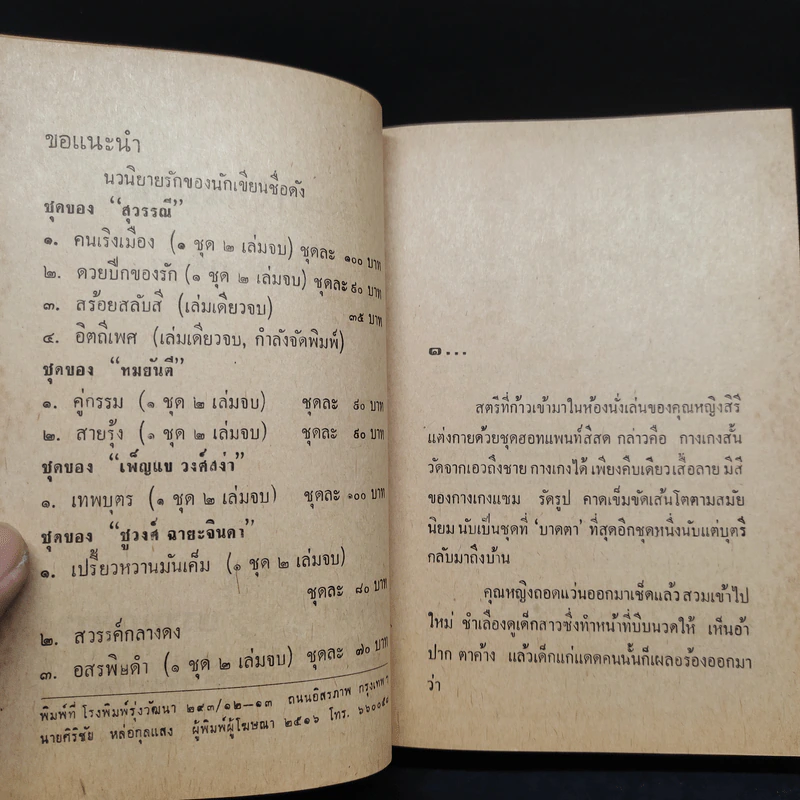 ขอแนะนำ
นวนิยายรักของนักเขียนชื่อดัง
ชุดของ “สุวรรณี”
๑. คนเริงเมือง (๑ ชุด ๒ เล่มจบ) ชุดละ ๑๐๐ บาท
๒. ดวยบึกของรัก (๑ ชุด ๒ เล่มจบ) ชุดละ ๙๐ บาท
๓. สร้อยสลับสี (เล่มเดียวจบ) ๓๕ บาท
๔. อิตถีเพศ (เล่มเดียวจบ, กำลังจัดพิมพ์)
ชุดของ “ทมยันตี”
๑. คู่กรรม (๑ ชุด ๒ เล่มจบ) ชุดละ ๙๐ บาท
๒. สายรุ้ง (๑ ชุด ๒ เล่มจบ) ชุดละ ๙๐ บาท
ชุดของ “เพ็ญแข วงศ์สง่า”
๑. เทพบุตร (๑ ชุด ๒ เล่มจบ) ชุดละ ๑๐๐ บาท
ชุดของ “ชูวงศ์ ฉายะจินดา”
๑. เปรี้ยวหวานมันเค็ม (๑ ชุด ๒ เล่มจบ)
ชุดละ ๘๐ บาท
๒. สวรรค์กลางดง
๓. อสรพิษดำ (๑ ชุด ๒ เล่มจบ) ชุดละ ๗๐ บาท
พิมพ์ที่ โรงพิมพ์รุ่งวัฒนา ๒๙๓/๑๒–๑๓ ถนนอิสรภาพ กรุงเทพฯ
นายศิริชัย หล่อกุลแสง ผู้พิมพ์ผู้โฆษณา ๒๕๑๖ โทร.
๑...
สตรีที่ก้าวเข้ามาในห้องนั่งเล่นของคุณหญิงสิรี
แต่งกายด้วยชุดฮอทแพนท์สีสด กล่าวคือ กางเกงสั้น
วัดจากเอวถึงชาย กางเกงได้ เพียงคืบเดียว เสื้อลาย มีสี
ของกางเกงแซม รัดรูป คาดเข็มขัดเส้นโตตามสมัย
นิยม นับเป็นชุดที่ ‘บาดตา’ ที่สุดอีกชุดหนึ่งนับแต่บุตรี
กลับมาถึงบ้าน
คุณหญิงถอดแว่นออกมาเช็ดแล้ว สวมเข้าไป
ใหม่ ชำเลืองดูเด็กสาวซึ่งทำหน้าที่บีบนวดให้ เห็นอ้า
ปาก ตาค้าง แล้วเด็กแก่แดดคนนั้นก็เผลอร้องออกมา
ว่า